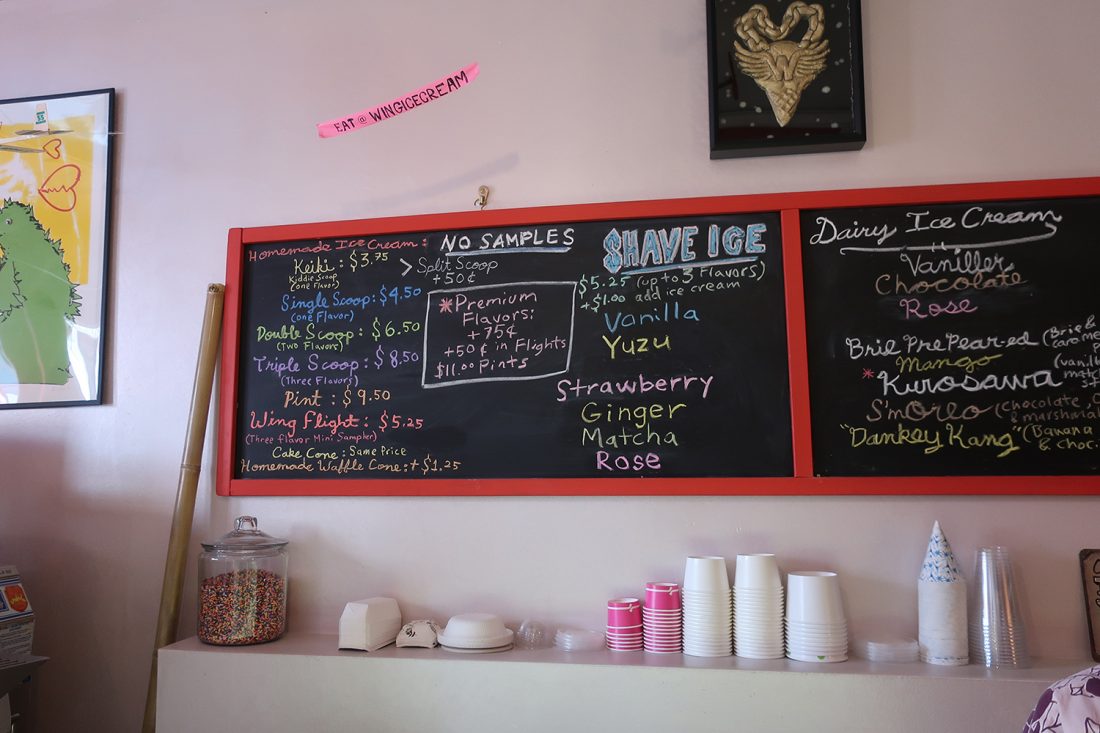 EAT @ WINGICECREAM
W
Homemade Ice Cream:
Keiki: $3.75
Kiddie Scoop
(one Flavor)
> Split Scoop
+50¢
Single Scoop: $4.50
(one Flavor)
Double Scoop: $6.50
(Two Flavors)
Triple Scoop: $8.50
(Three Flavors)
Pint: $9.50
Wing Flight: $5.25
(Three flavor Mini Sampler)
Cake Cone: Same Price
Homemade Waffle Cone: + $1.25
NO SAMPLES
*Premium
Flavors:
+75¢
+50¢ in Flights
$11.00 Pints
SHAVE ICE
$5.25 (up to 3 Flavors)
+$1.00 add ice cream
Vanilla
Yuzu
Strawberry
Ginger
Matcha
Rose
Dairy Ice Cream
Vanilla
Chocolate
Rose
Brie PrePear-ed (Brie &
Mango
*Kurosawa
S'mOreo (Chocolate,
& marshmal
"Dankey Kang" (Banana
& choc.